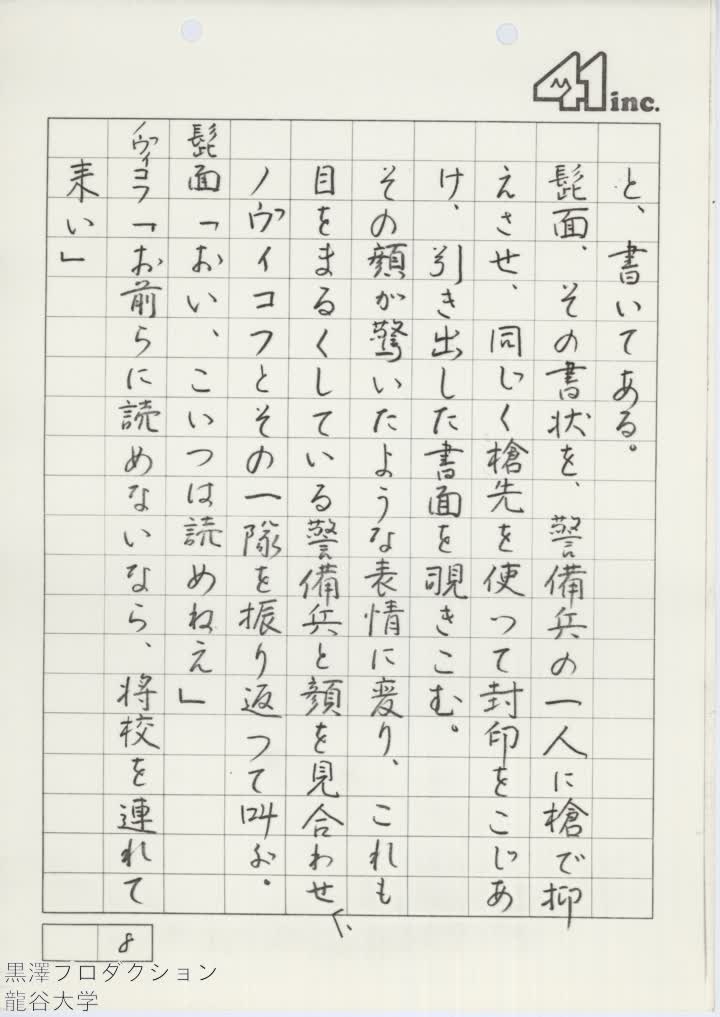 41 inc.
と、書いてある。
髭面、その書状を、警備兵の一人に槍で抑
えさせ、同じく槍先を使つて封印をこじあ
け、引き出した書面を覗きこむ。
その顔が驚いたような表情に変り、これも
目をまるくしている警備兵と顔を見合わせ、
ノヴイコフとその一隊を振り返つて叫ぶ。
髭面「おい、こいつは読めねえ」
ノヴィコフ「お前らに読めないなら、将校を連れて
来い」
8
黒澤プロダクション
龍谷大学